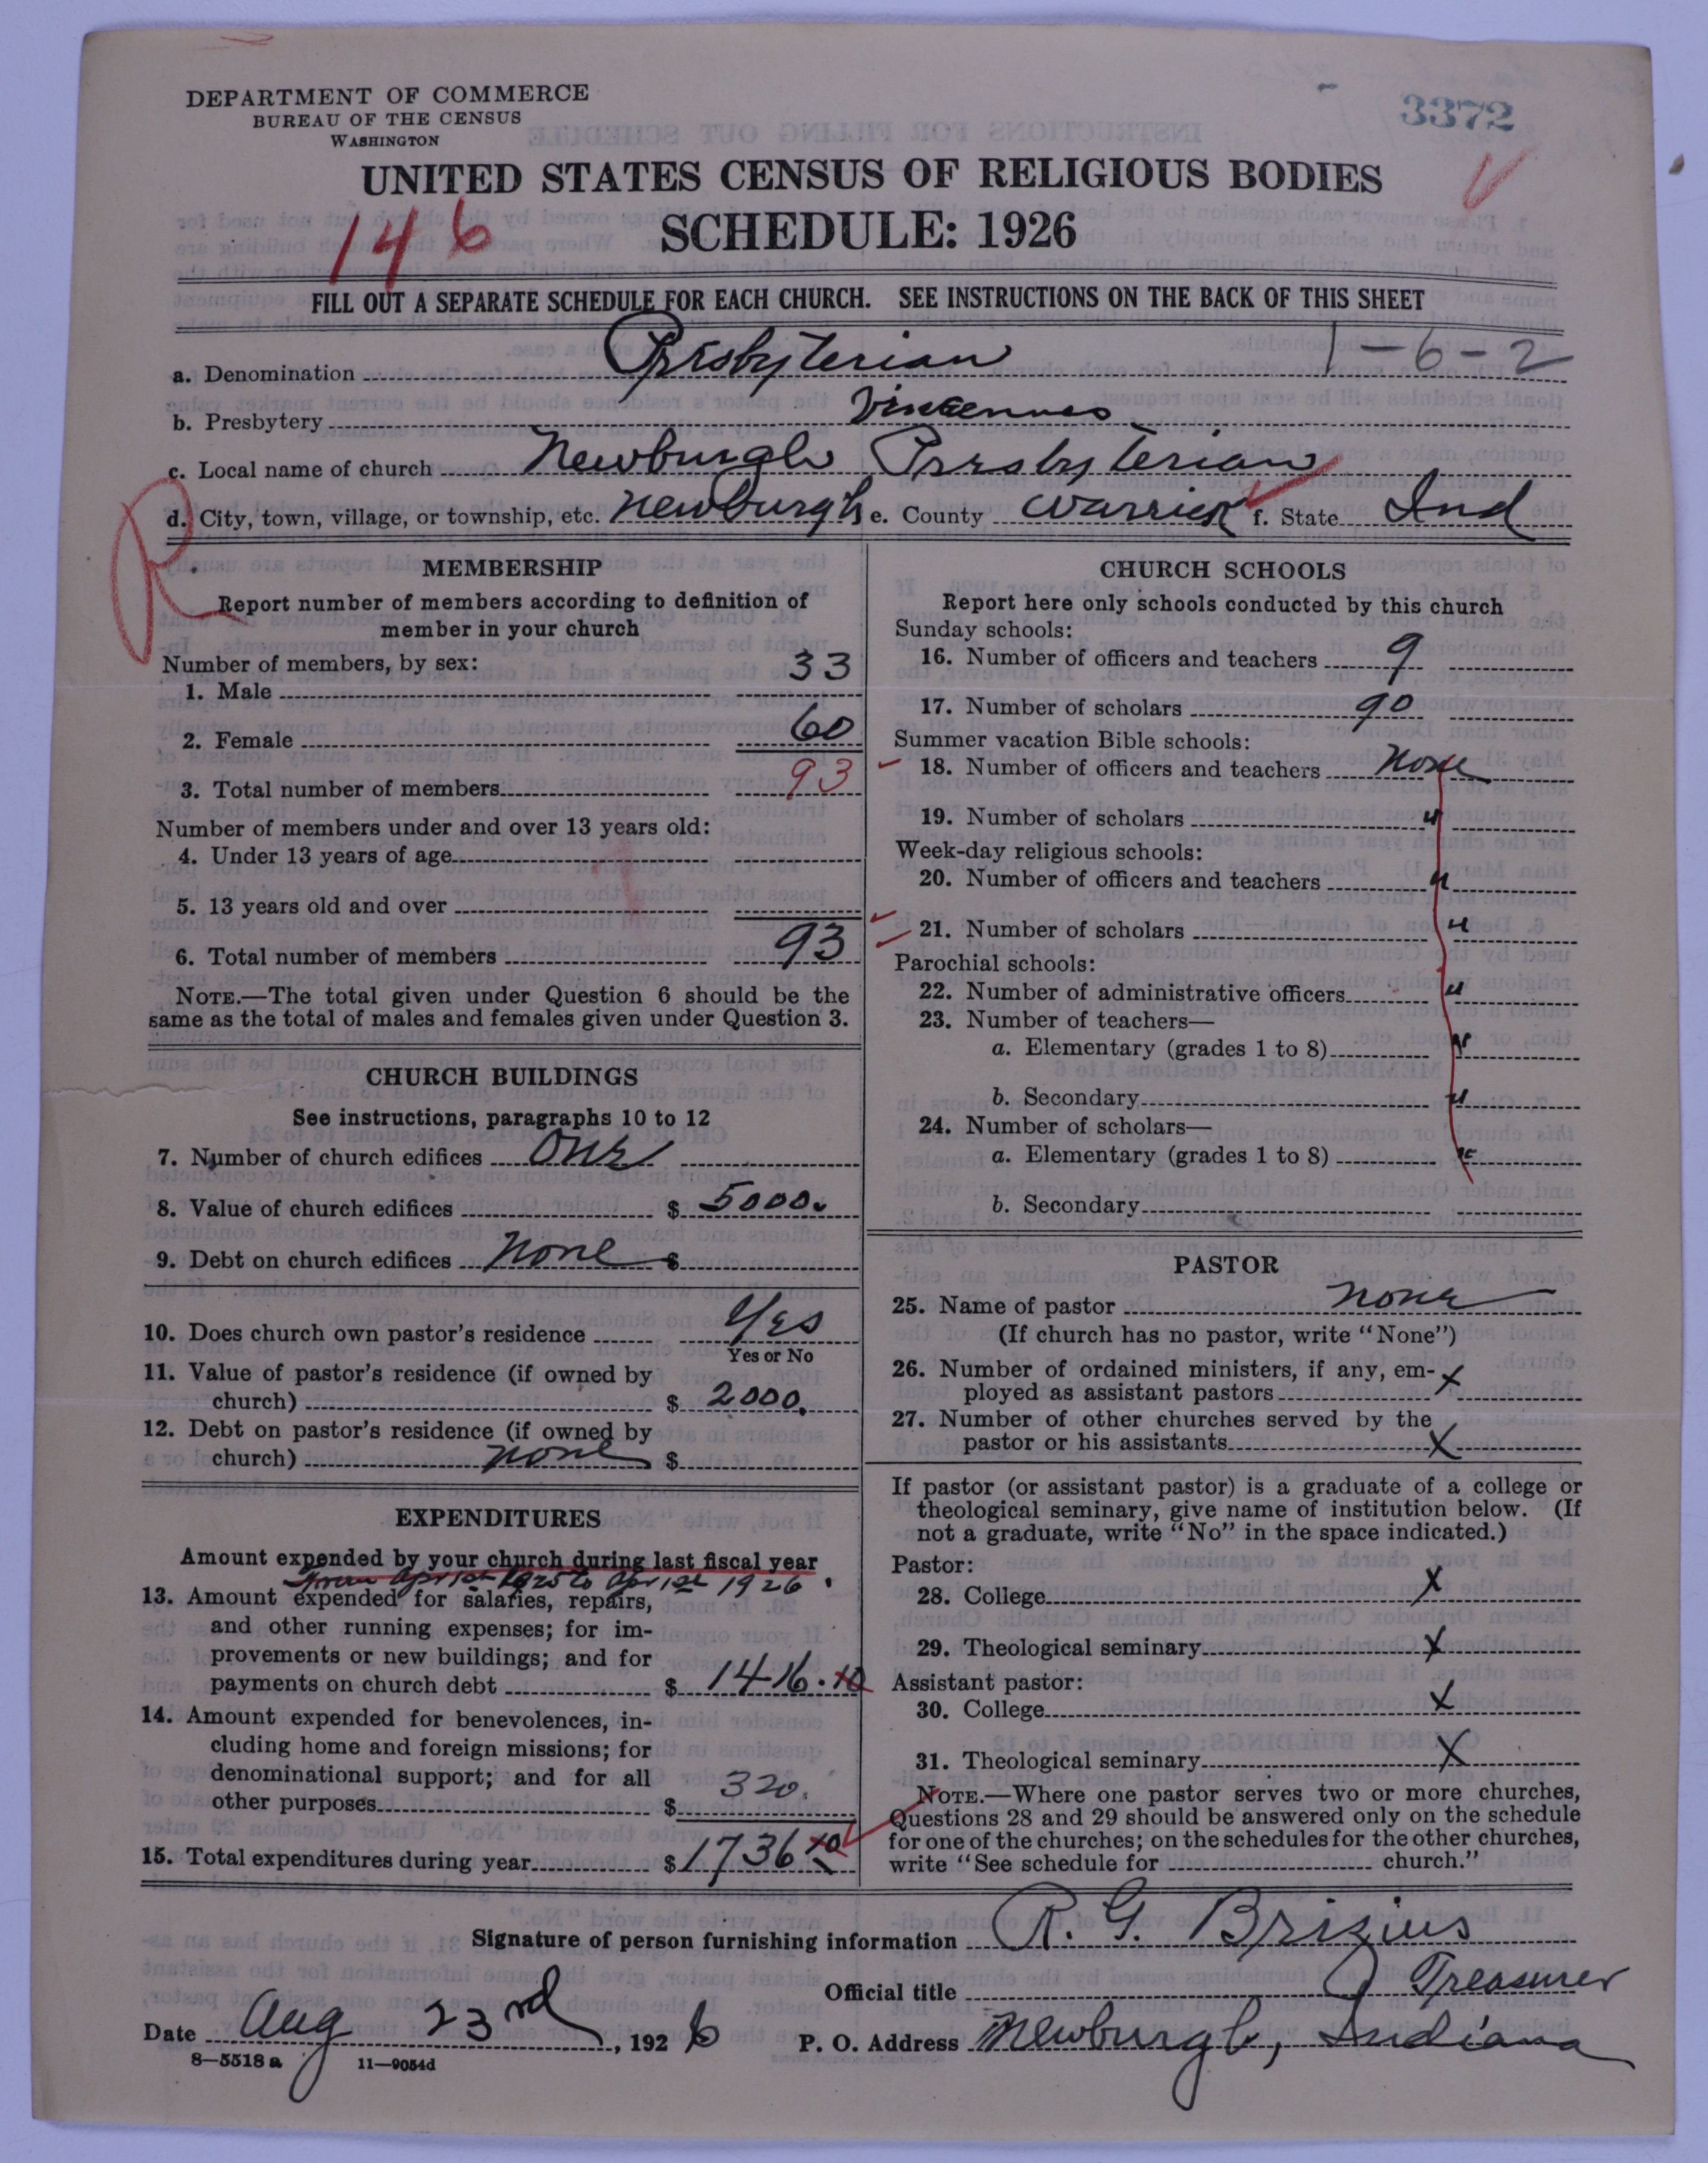 DEPARTMENT OF COMMERCE
BUREAU OF THE CENSUS
WASHINGTON
3372
UNITED STATES CENSUS OF RELIGIOUS BODIES
SCHEDULE: 1926
146
FILL OUT A SEPARATE SCHEDULE FOR EACH CHURCH. SEE INSTRUCTIONS ON THE BACK OF THIS SHEET
a. Denomination Presbyterian 1-6-2
b. Presbytery Vincennes
c. Local name of church Newburgh Presbyterian
d. City, town, village, or township, etc. Newburgh e. County Warrick f. State Ind
R
MEMBERSHIP
Report number of members according to definition of
member in your church
Number of members, by sex:
1. Male 33
2. Female 60
3. Total number of members 93
Number of members under and over 13 years old:
4. Under 13 years of age
5. 13 years old and over
6. Total number of members 93
NOTE.—The total given under Question 6 should be the
same as the total of males and females given under Question 3.
CHURCH BUILDINGS
See instructions, paragraphs 10 to 12
7. Number of church edifices One
8. Value of church edifices $ 5000.
9. Debt on church edifices None $
10. Does church own pastor's residence Yes
Yes or No
11. Value of pastor's residence (if owned by
church) $ 2000.
12. Debt on pastor's residence (if owned by
church) None $
EXPENDITURES
Amount expended by your church during last fiscal year
From Apr 1st 1925 to Apr 1st 1926.
13. Amount expended for salaries, repairs,
and other running expenses; for im-
provements or new buildings; and for
payments on church debt $ 1416.10
14. Amount expended for benevolences, in-
cluding home and foreign missions; for
denominational support; and for all
other purposes $ 320.
15. Total expenditures during year $ 1736 10
CHURCH SCHOOLS
Report here only schools conducted by this church
Sunday schools:
16. Number of officers and teachers 9
17. Number of scholars 90
Summer vacation Bible schools:
18. Number of officers and teachers None
19. Number of scholars "
Week-day religious schools:
20. Number of officers and teachers "
21. Number of scholars "
Parochial schools:
22. Number of administrative officers "
23. Number of teachers—
a. Elementary (grades 1 to 8) "
b. Secondary "
24. Number of scholars—
a. Elementary (grades 1 to 8) "
b. Secondary
PASTOR
25. Name of pastor None
(If church has no pastor, write "None")
26. Number of ordained ministers, if any, em-
ployed as assistant pastors X
27. Number of other churches served by the
pastor or his assistants X
If pastor (or assistant pastor) is a graduate of a college or
theological seminary, give name of institution below. (If
not a graduate, write "No" in the space indicated.)
Pastor:
28. College X
29. Theological seminary X
Assistant pastor:
30. College X
31. Theological seminary X
NOTE.—Where one pastor serves two or more churches,
Questions 28 and 29 should be answered only on the schedule
for one of the churches; on the schedules for the other churches,
write "See schedule for church."
Signature of person furnishing information R. G. Brizius
Official title Treasurer
Date Aug 23rd, 1926 P. O. Address Newburgh, Indiana
8—5518 a 11—9054d